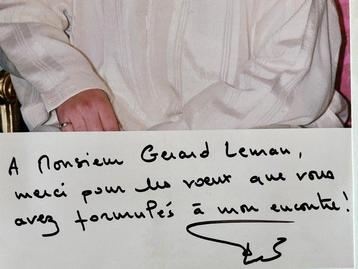 A Monsieur Gerard Leman,
merci pour les voeux que vous
avez formulés à mon encontre!